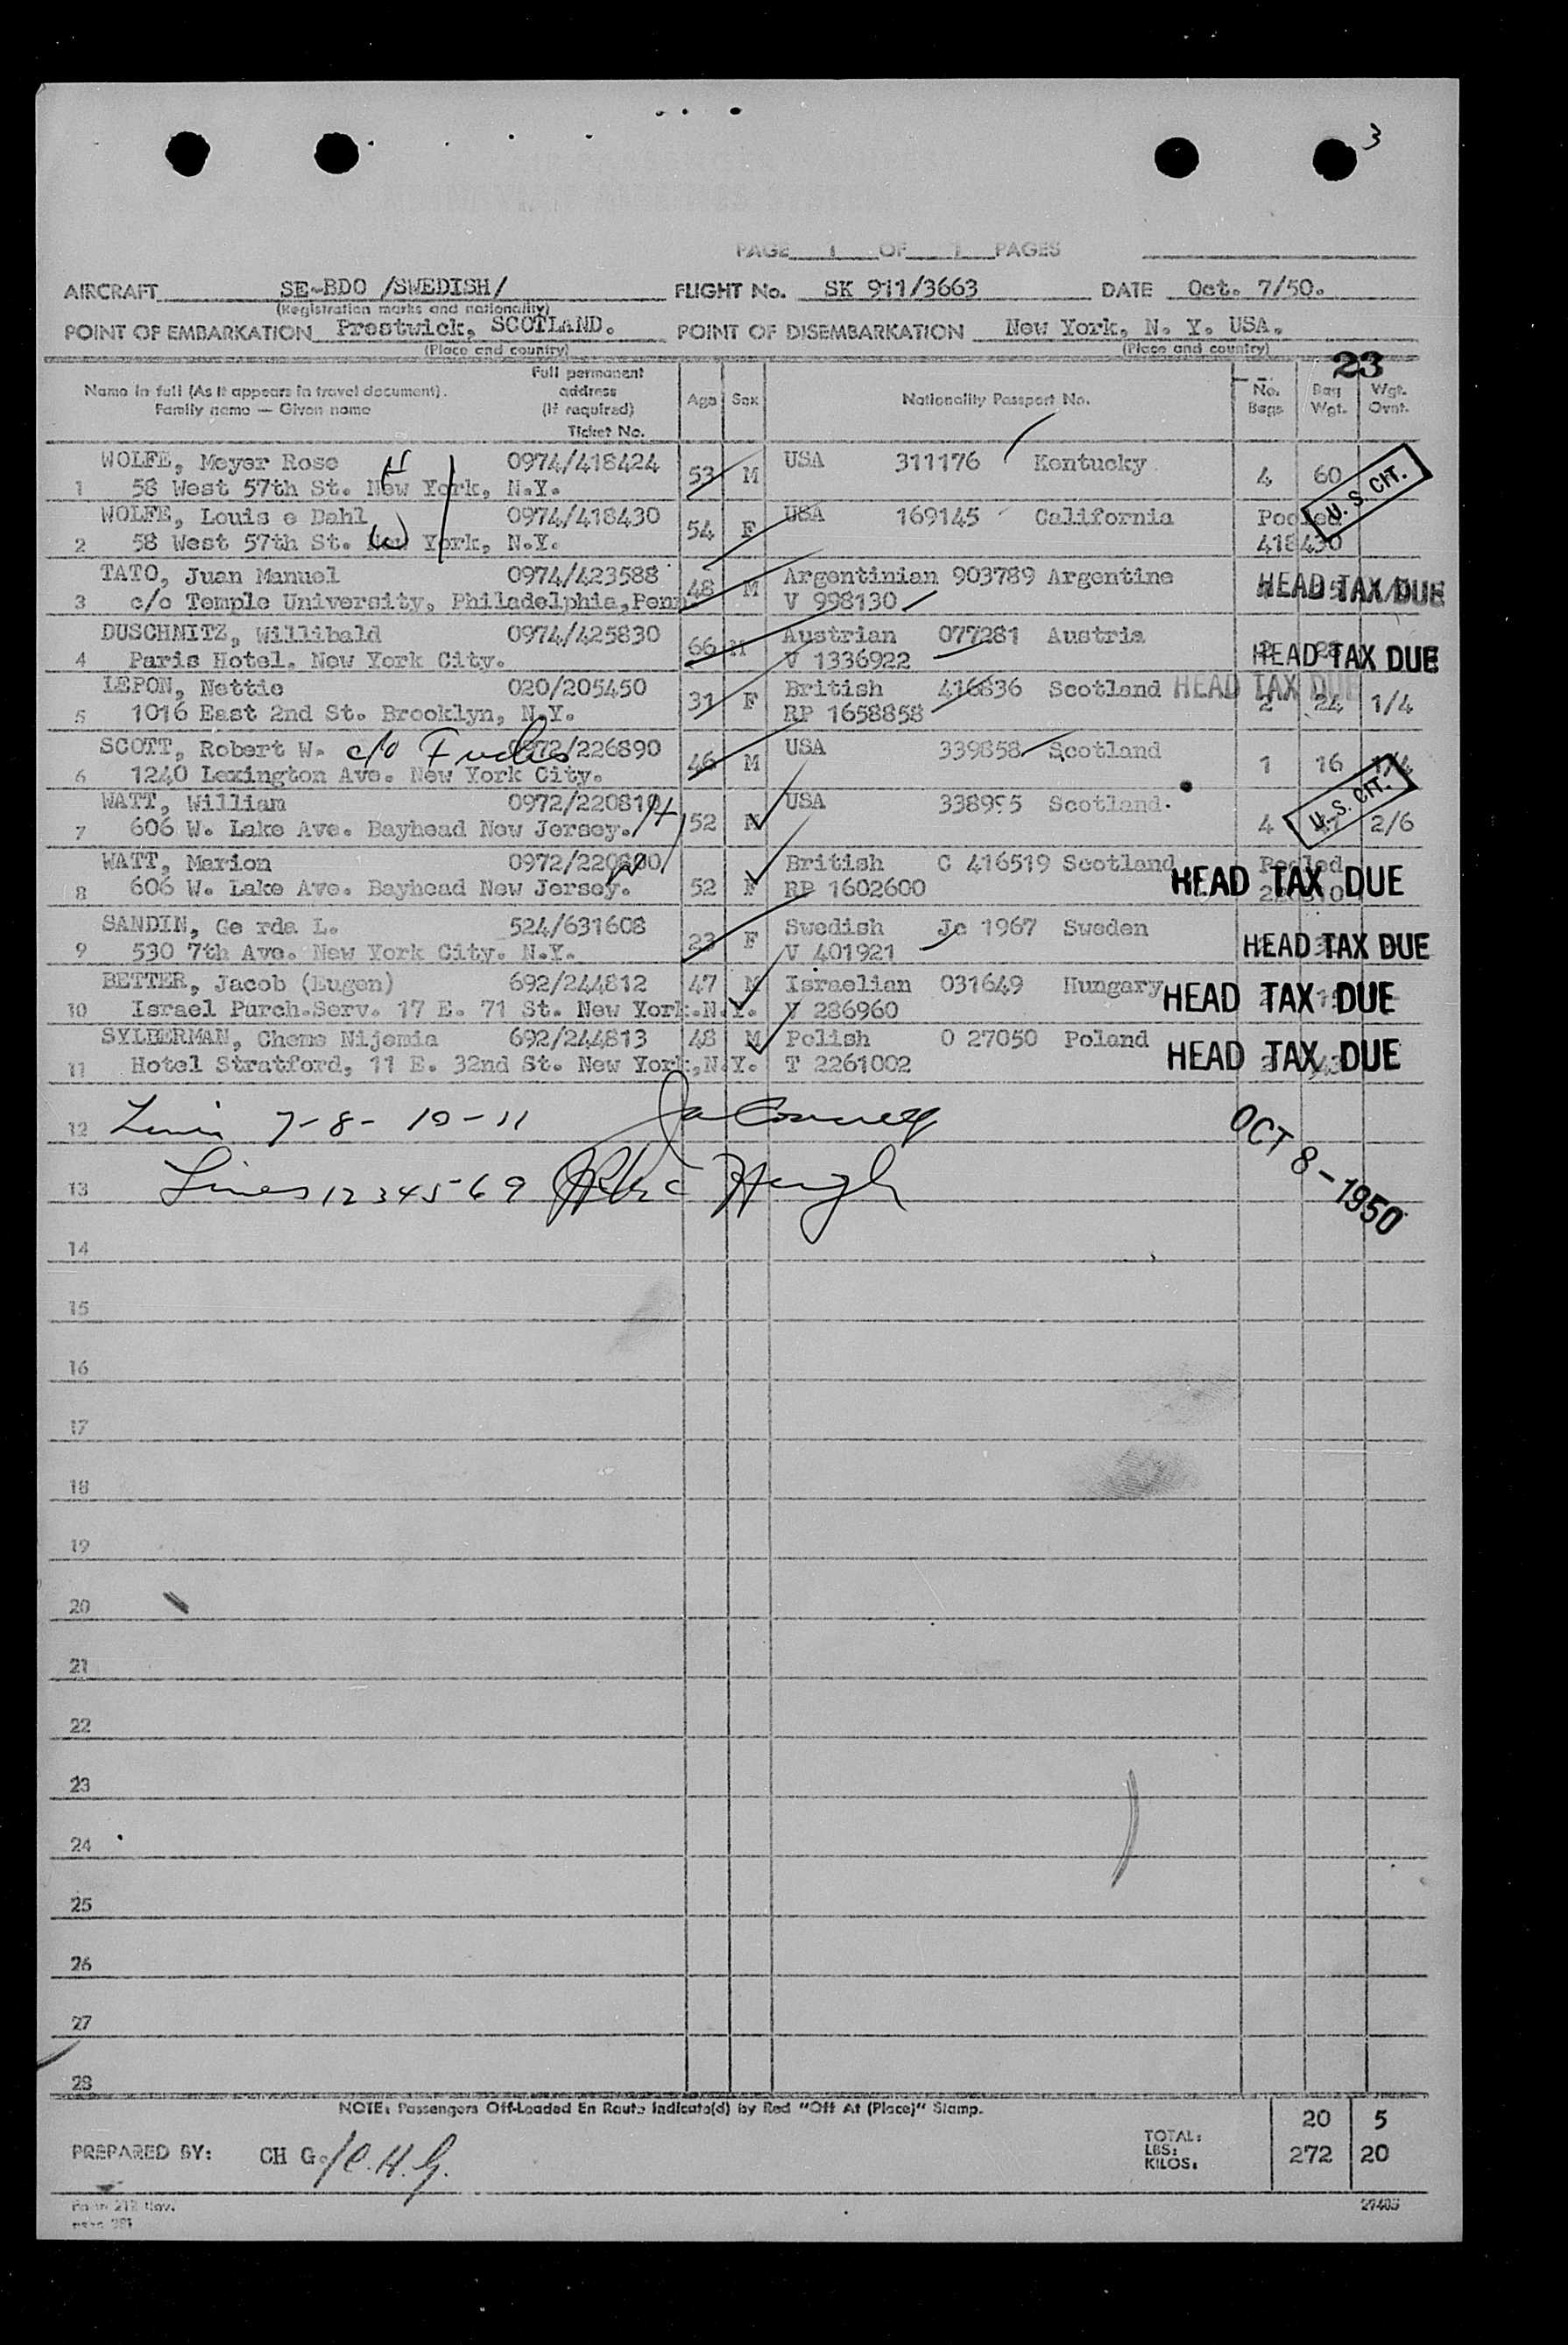 3
PAGE 1 OF 1 PAGES
AIRCRAFT SE-BDO /SWEDISH/ FLIGHT No. SK 911/3663 DATE Oct. 7/50.
(Registration marks and nationality)
POINT OF EMBARKATION Prestwick, SCOTLAND. POINT OF DISEMBARKATION New York, N. Y. USA.
(Place and country) (Place and country)
23
Name in full (As it appears in travel document). Family name — Given name Full permanent address (If required) Ticket No. Age Sex Nationality Passport No. No. Bags Bag Wgt. Wgt. Ovnt.
WOLFE, Meyer Rose H 0974/418424 53 M USA 311176 Kentucky 4 60 U.S. CIT.
1 58 West 57th St. New York, N.Y.
WOLFE, Louis e Dahl 0974/418430 54 F USA 169145 California Pooled
2 58 West 57th St. New York, N.Y. (W) 418430
TATO, Juan Manuel 0974/423588 48 M Argentinian 903789 Argentine HEAD TAX DUE
3 c/o Temple University, Philadelphia, Penn. V 998130
DUSCHNITZ, Willibald 0974/425830 66 M Austrian 077281 Austria HEAD TAX DUE
4 Paris Hotel. New York City. V 1336922
LEPON, Nettie 020/205450 31 F British 416836 Scotland HEAD TAX DUE 2 24 1/4
5 1016 East 2nd St. Brooklyn, N.Y. RP 1658858
SCOTT, Robert W. c/o 0972/226890 46 M USA 339858 Scotland 1 16 1/4
6 1240 Lexington Ave. New York City.
WATT, William 0972/220810 H 52 M USA 338995 Scotland. 4 2/6 U.S. CIT.
7 606 W. Lake Ave. Bayhead New Jersey.
WATT, Marion 0972/220800 W 52 F British C 416519 Scotland Pooled HEAD TAX DUE
8 606 W. Lake Ave. Bayhead New Jersey. RP 1602600 220810
SANDIN, Ge rda L. 524/631608 23 F Swedish Jc 1967 Sweden HEAD TAX DUE
9 530 7th Ave. New York City. N.Y. V 401921
BETTER, Jacob (Eugen) 692/244812 47 M Israelian 031649 Hungary HEAD TAX DUE
10 Israel Purch.Serv. 17 E. 71 St. New York.N.Y. V 286960
SYLBERMAN, Chems Nijemia 692/244813 48 M Polish O 27050 Poland HEAD TAX DUE
11 Hotel Stratford, 11 E. 32nd St. New York,N.Y. T 2261002
12 7-8- 10-11 OCT 8-1950
13 Lines 1 2 3 4 5 6 9
14
15
16
17
18
19
20
21
22
23
24
25
26
27
28
NOTE: Passengers Off-Loaded En Route Indicate(d) by Red "Off At (Place)" Stamp.
TOTAL: 20 5
LBS:
KILOS: 272 20
PREPARED BY: CH G./C.H.G.
Form 212 Rev.
27405